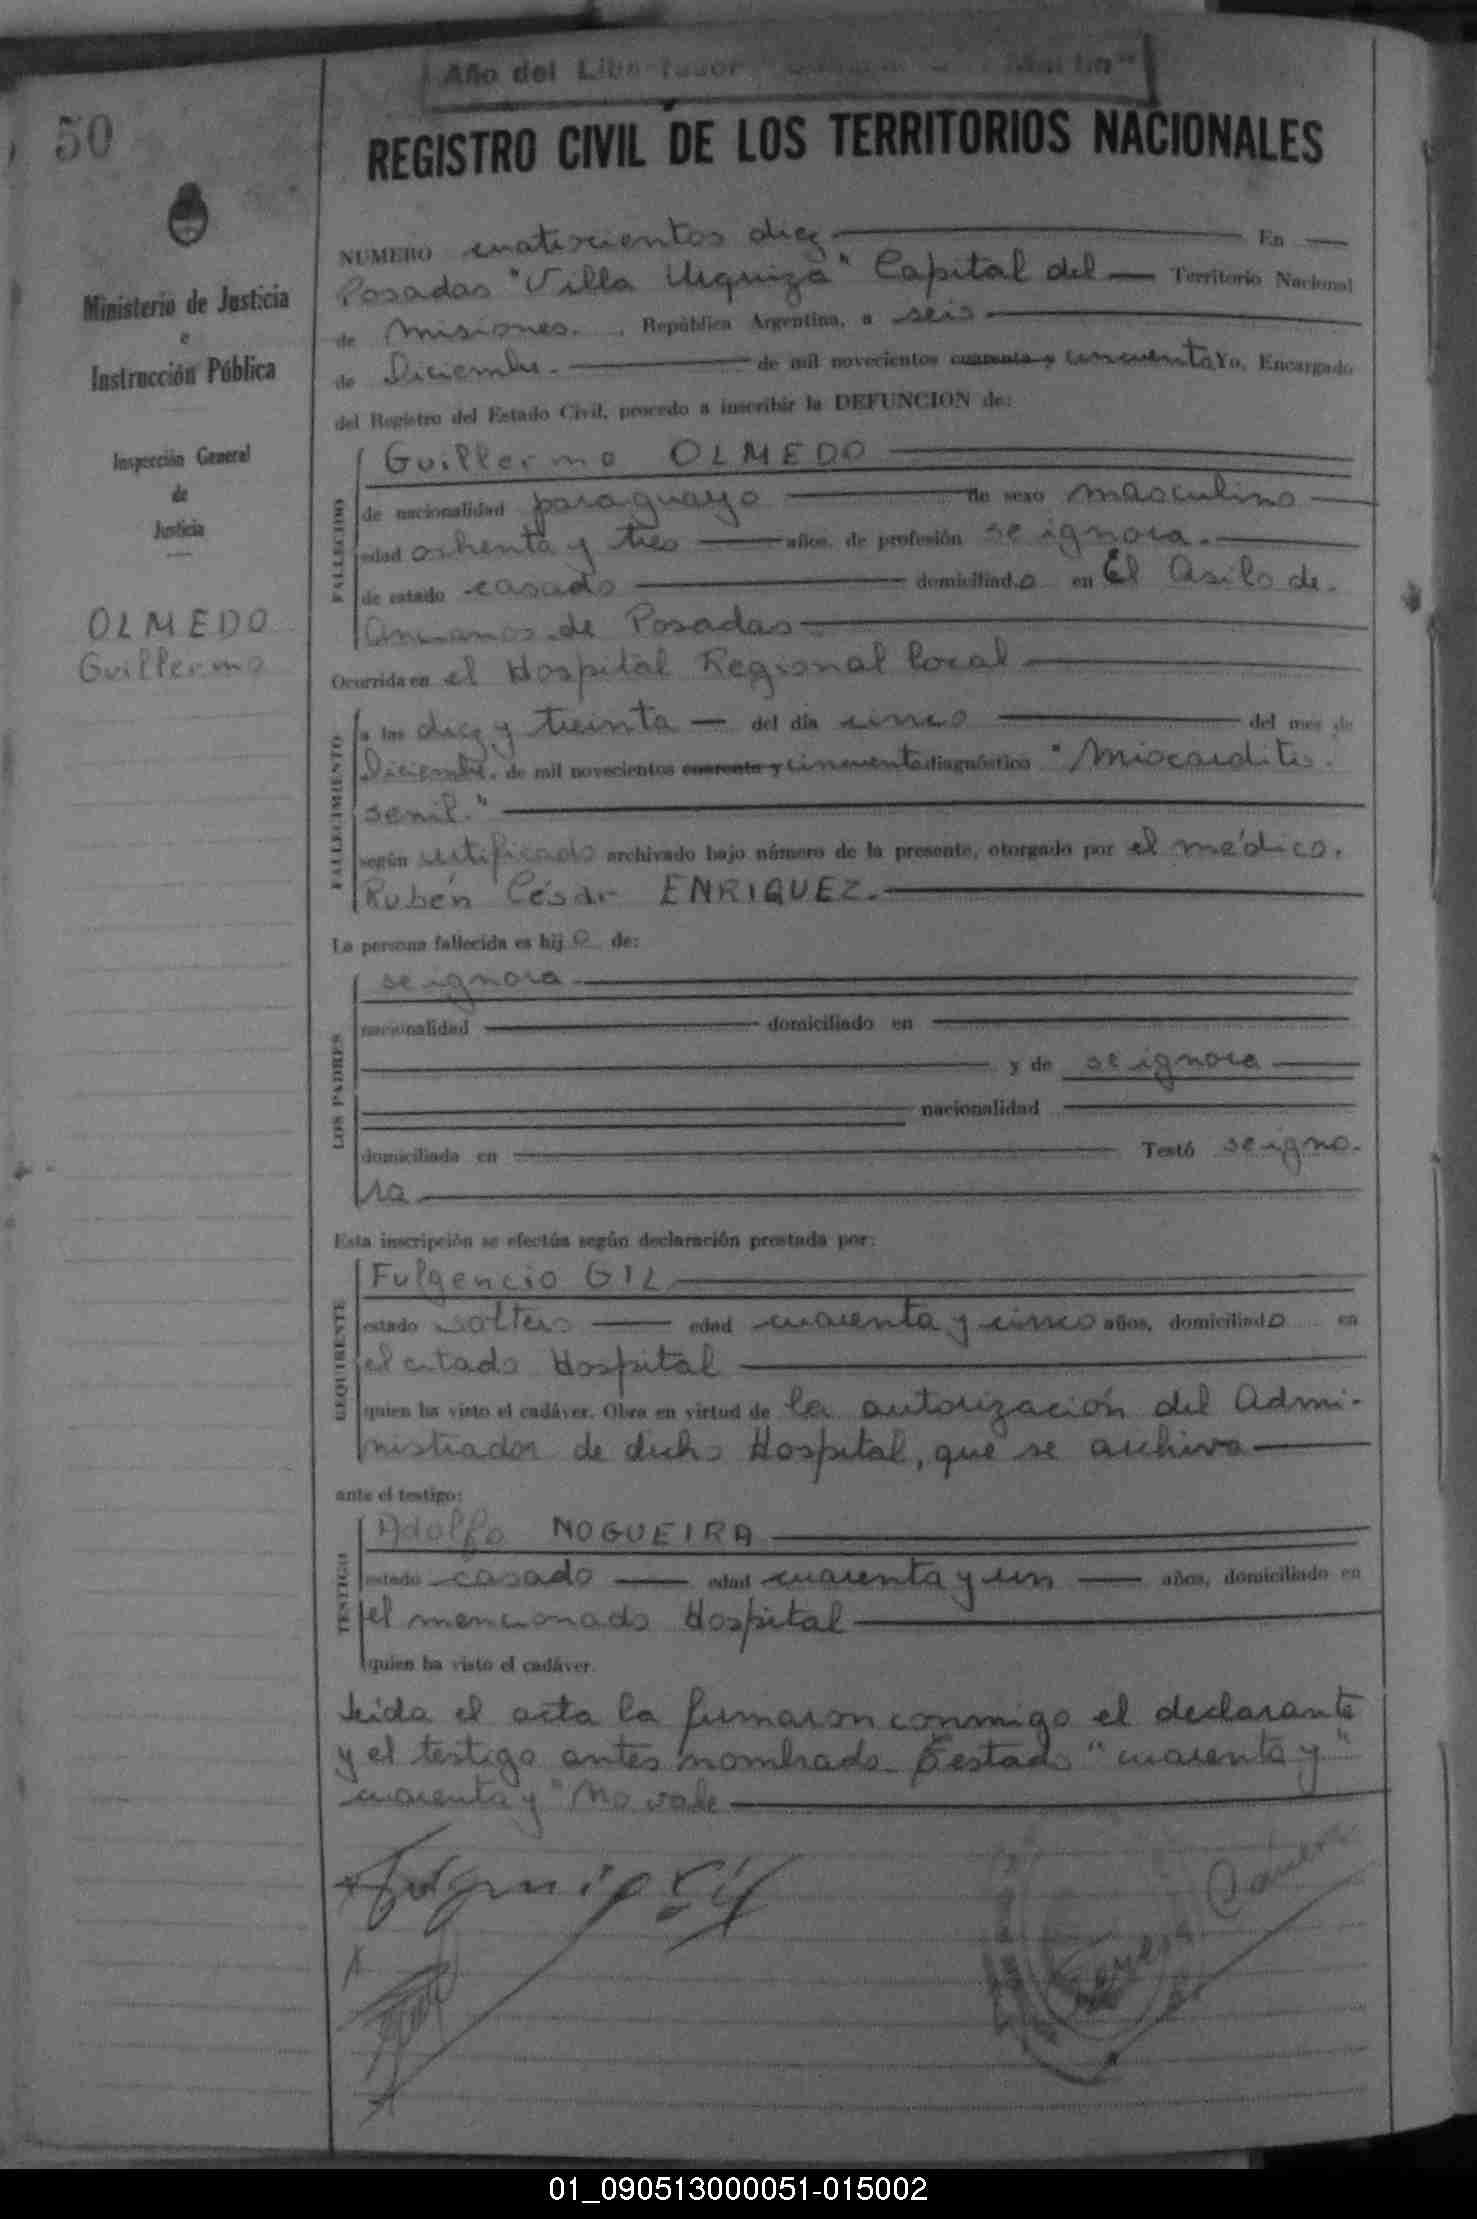 Año del Libertador
50
REGISTRO CIVIL DE LOS TERRITORIOS NACIONALES
Ministerio de Justicia
e
Instrucción Pública
Inspección General
de
Justicia
OLMEDO
Guillermo
NUMERO cuatrocientos diez En
Posadas "Villa Urquiza" Capital del Territorio Nacional
de Misiones. , República Argentina, a seis
de Diciembre. de mil novecientos cuarenta y cincuenta Yo, Encargado
del Registro del Estado Civil, procedo a inscribir la DEFUNCION de:
FALLECIDO
Guillermo OLMEDO
de nacionalidad paraguayo de sexo masculino
edad ochenta y tres años, de profesión se ignora.
de estado casado domiciliado en El Asilo de
Ancianos de Posadas
Ocurrida en el Hospital Regional local
FALLECIMIENTO
a las diez y treinta del día cinco del mes de
Diciembre. de mil novecientos cuarenta y cincuenta diagnóstico "Miocarditis
senil."
según certificado archivado bajo número de la presente, otorgado por el médico.
Rubén César ENRIQUEZ.
La persona fallecida es hijo de:
LOS PADRES
se ignora
nacionalidad domiciliado en
y de se ignora
nacionalidad
domiciliada en Testó se igno-
ra
Esta inscripción se efectúa según declaración prestada por:
REQUIRENTE
Fulgencio GIL
estado soltero edad cuarenta y cinco años, domiciliado en
el citado Hospital
quien ha visto el cadáver. Obra en virtud de la autorización del Admi-
nistrador de dicho Hospital, que se archiva
ante el testigo:
TESTIGO
Adolfo NOGUEIRA
estado casado edad cuarenta y un años, domiciliado en
el mencionado Hospital
quien ha visto el cadáver.
Leida el acta la firmaron conmigo el declarante
y el testigo antes nombrado. Testado "cuarenta y"
cuarenta y" No vale
Fulgencio Gil
01_090513000051-015002